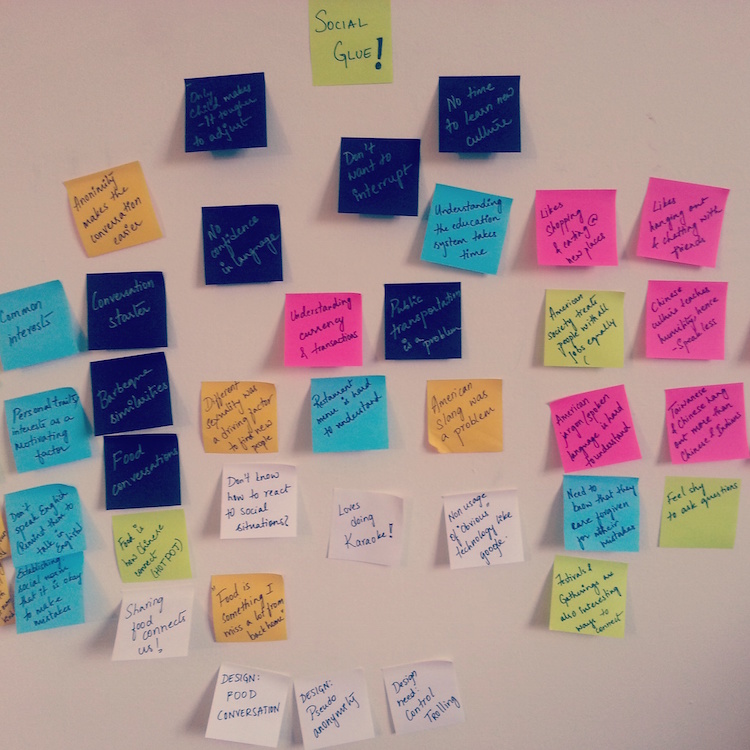 SOCIAL
GLUE!
Only
child makes
it tougher
to adjust
No time
to learn new
culture
Don't
want to
interrupt
Anonimity
makes the
conversation
easier
No
confidence
in language
Understanding
the education
system takes
time
Likes
shopping
& eating @
new places
Likes
hanging out
& chatting with
friends
Common
interests
Conversation
starter
Understanding
currency
& transactions
Public
transportation
is a problem
American
society treats
people with all
jobs equally
Chinese
culture teaches
humility hence
- Speak less
Personal traits,
interests as a
motivating
factor
Barbeque
similarities
Different
sexuality was
a driving factor
to find new
people
Restaurant
menu is hard
to understand
American
slang was
a problem
American
jargon/spoken
language is hard
to understand
Taiwanese
& Chinese hang
out more than
Chinese & Indians
Food
conversations
Don't
speak English
Remind them to
talk in
English!
Food is
how Chinese
connect
(HOTPOT)
Don't know
how to react
to social
situations?
Loves
doing
Karaoke!
Non usage
of "obvious"
technology like
google.
Need to
know that they
are forgiven
for their
mistakes
Feel shy
to ask questions
Establishing
social norms
that it is okay
to make
mistakes
Sharing
food
connects
us!
"Food is
something I
miss a lot from
back home"
Festivals &
Gatherings are
also interesting
ways to
connect
DESIGN:
FOOD
CONVERSATION
DESIGN:
Pseudo
anonymity
Design
need:
Control
Trolling